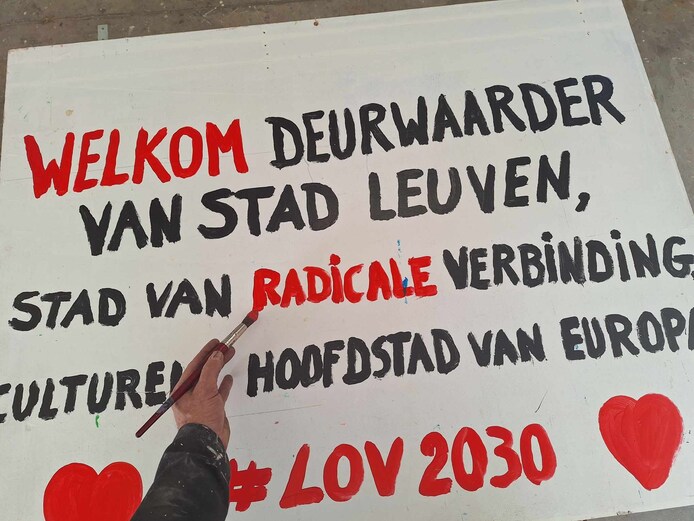 WELKOM DEURWAARDER
VAN STAD LEUVEN,
STAD VAN RADICALE VERBINDING
HOOFDSTAD VAN EUROPA
# LOV 2030